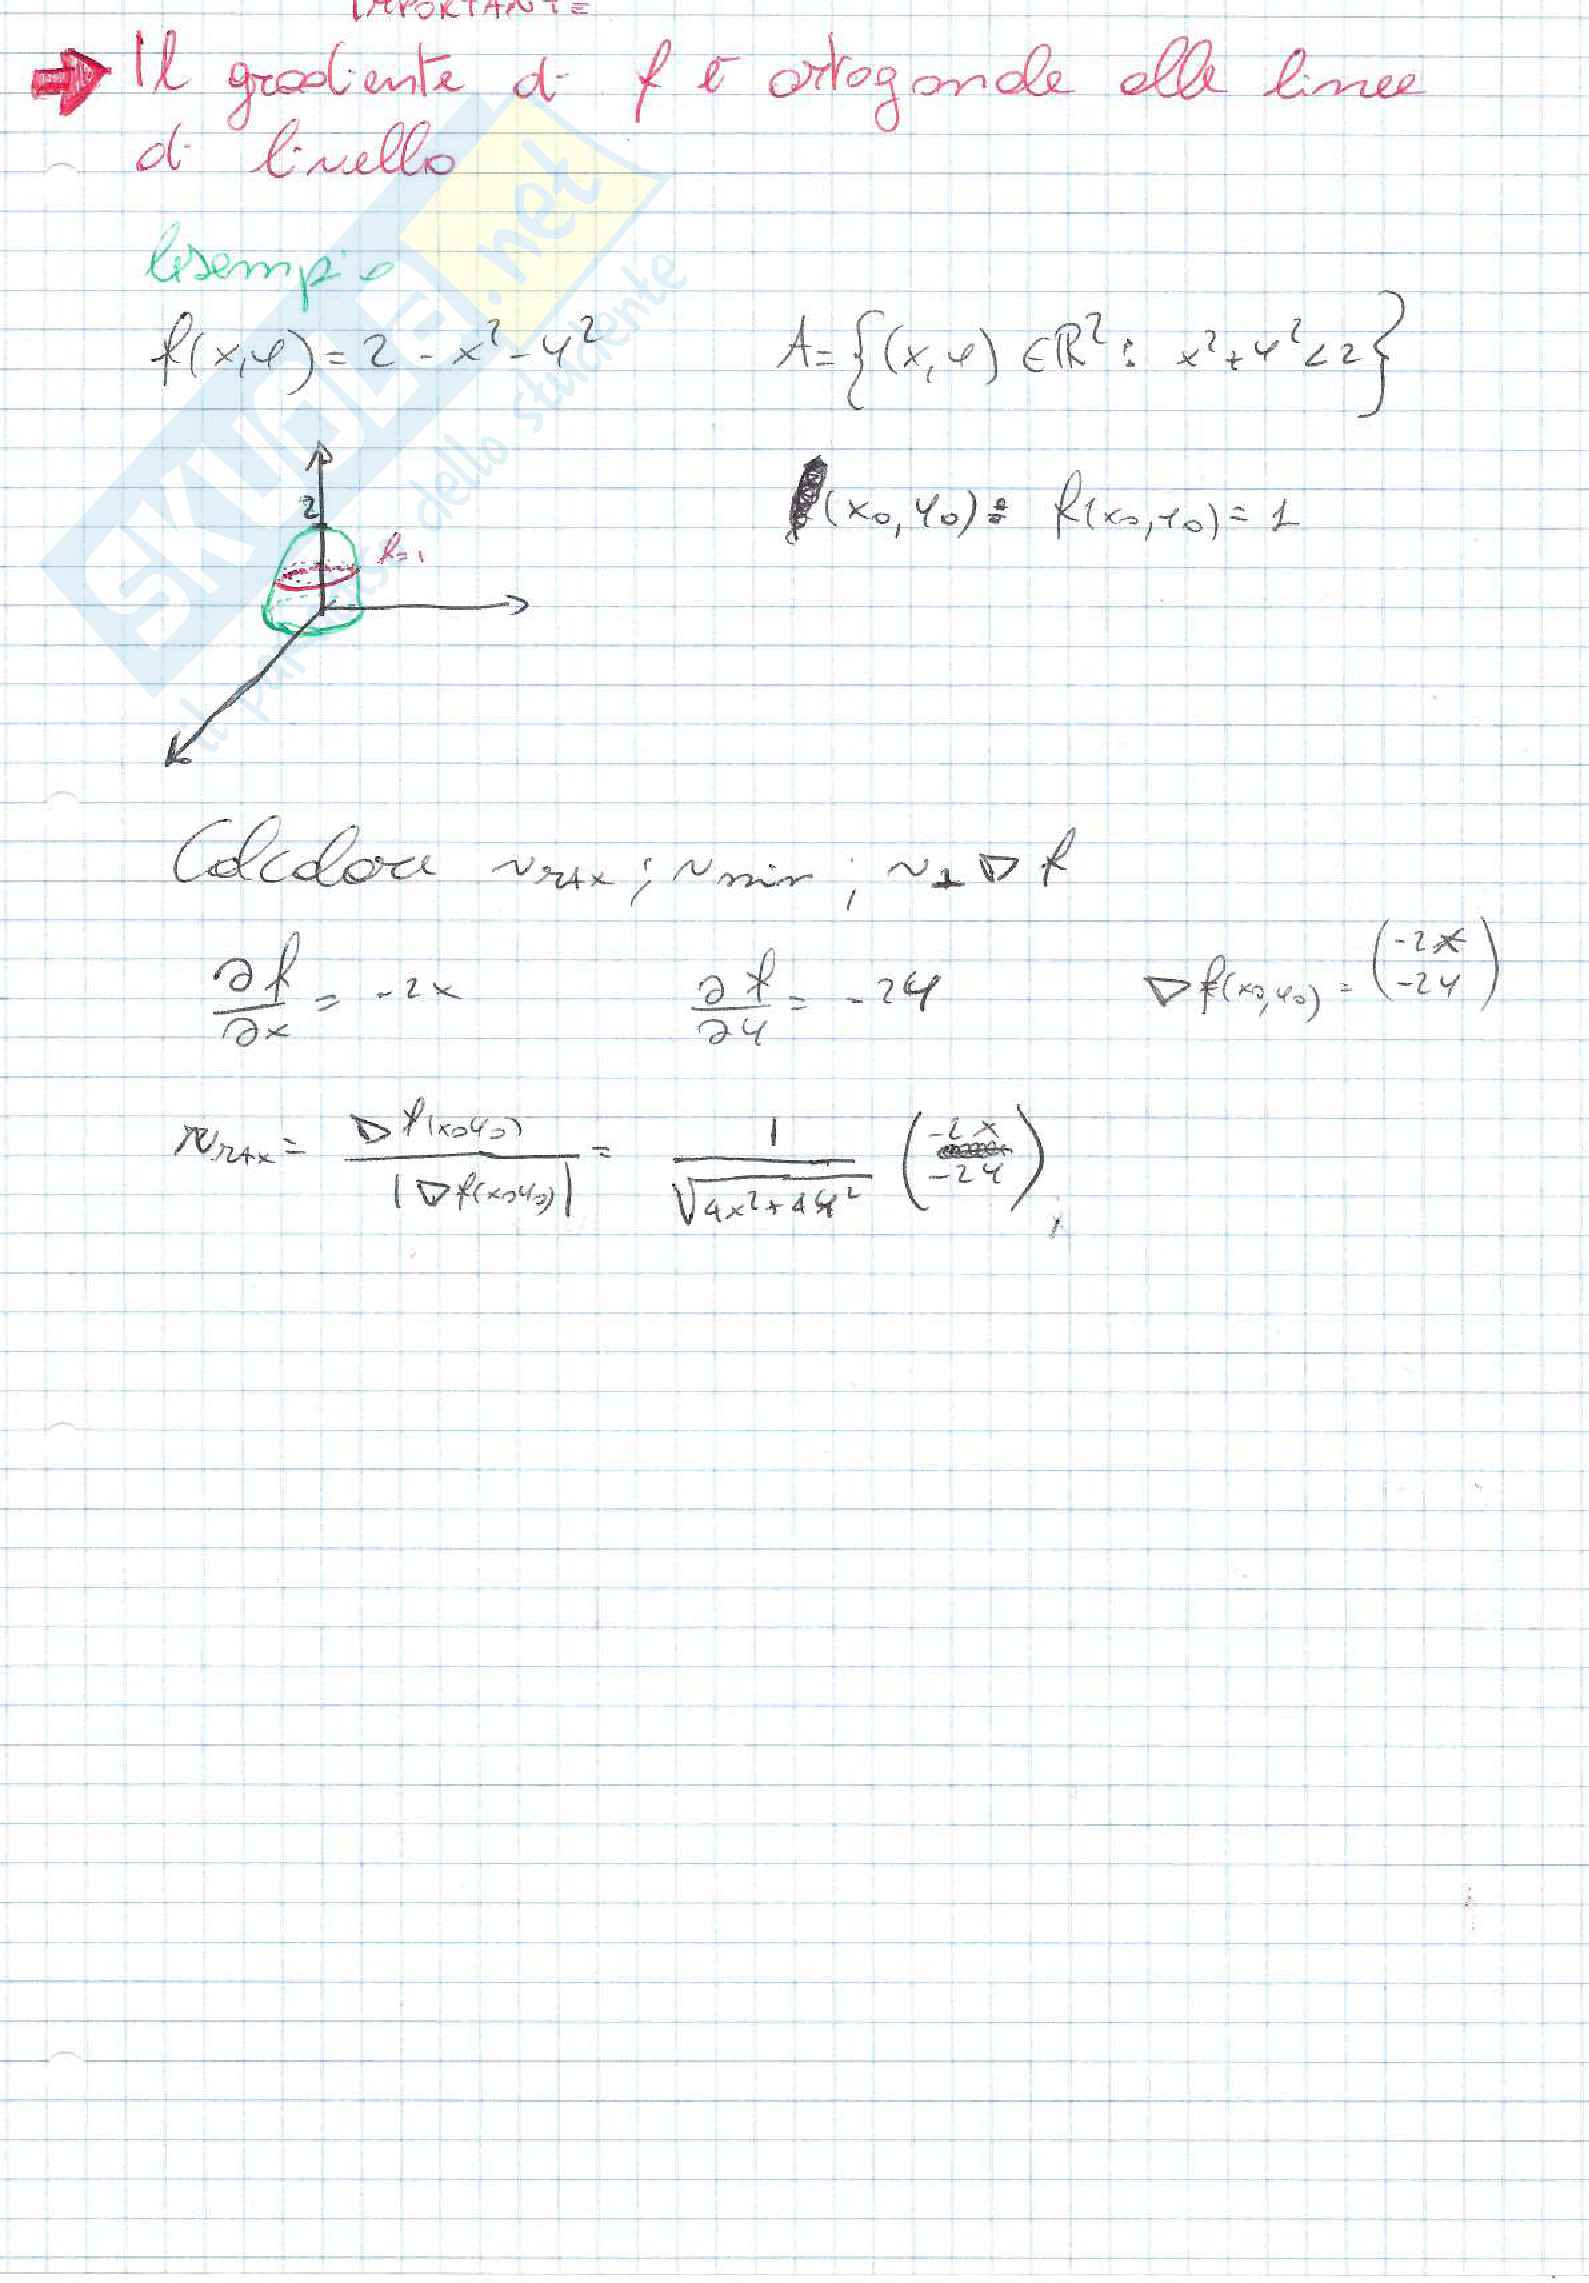 IMPORTANTE
Il gradiente di f è ortogonale alle linee
di livello
Esempio
f(x,y) = 2 - x² - y²    A = {(x,y) ∈ ℝ² : x² + y² < 2}
2
f=1
(x₀,y₀) : f(x₀,y₀) = 1
Calcolare v_MAX ; v_min ; v ⊥ ∇f
∂f/∂x = -2x    ∂f/∂y = -2y    ∇f(x₀,y₀) = (-2x -2y)
v_MAX = ∇f(x₀y₀)/|∇f(x₀y₀)| = 1/√(4x²+4y²) (-2x -2y)
SKUOLA.net
il paradiso dello studente